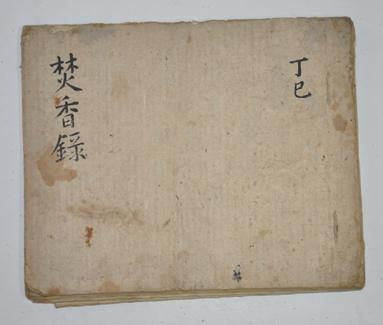 丁巳
焚香錄